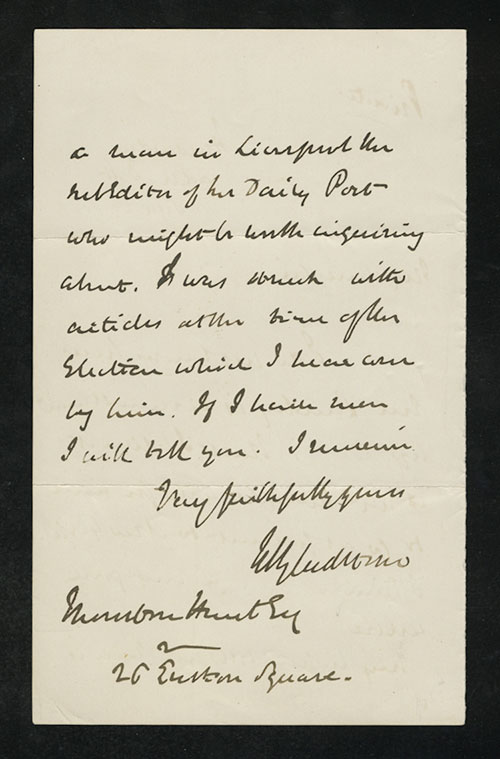 a man in Liverpool the
subEditor of the Daily Post
who might be worth inquiring
about. I was struck with
articles at the time of the
Election which I hear were
by him. If I hear more
I will tell you. I remain
Very faithfully yours
WEGladstone
Thornton Hunt Esq
26 Euston Square.